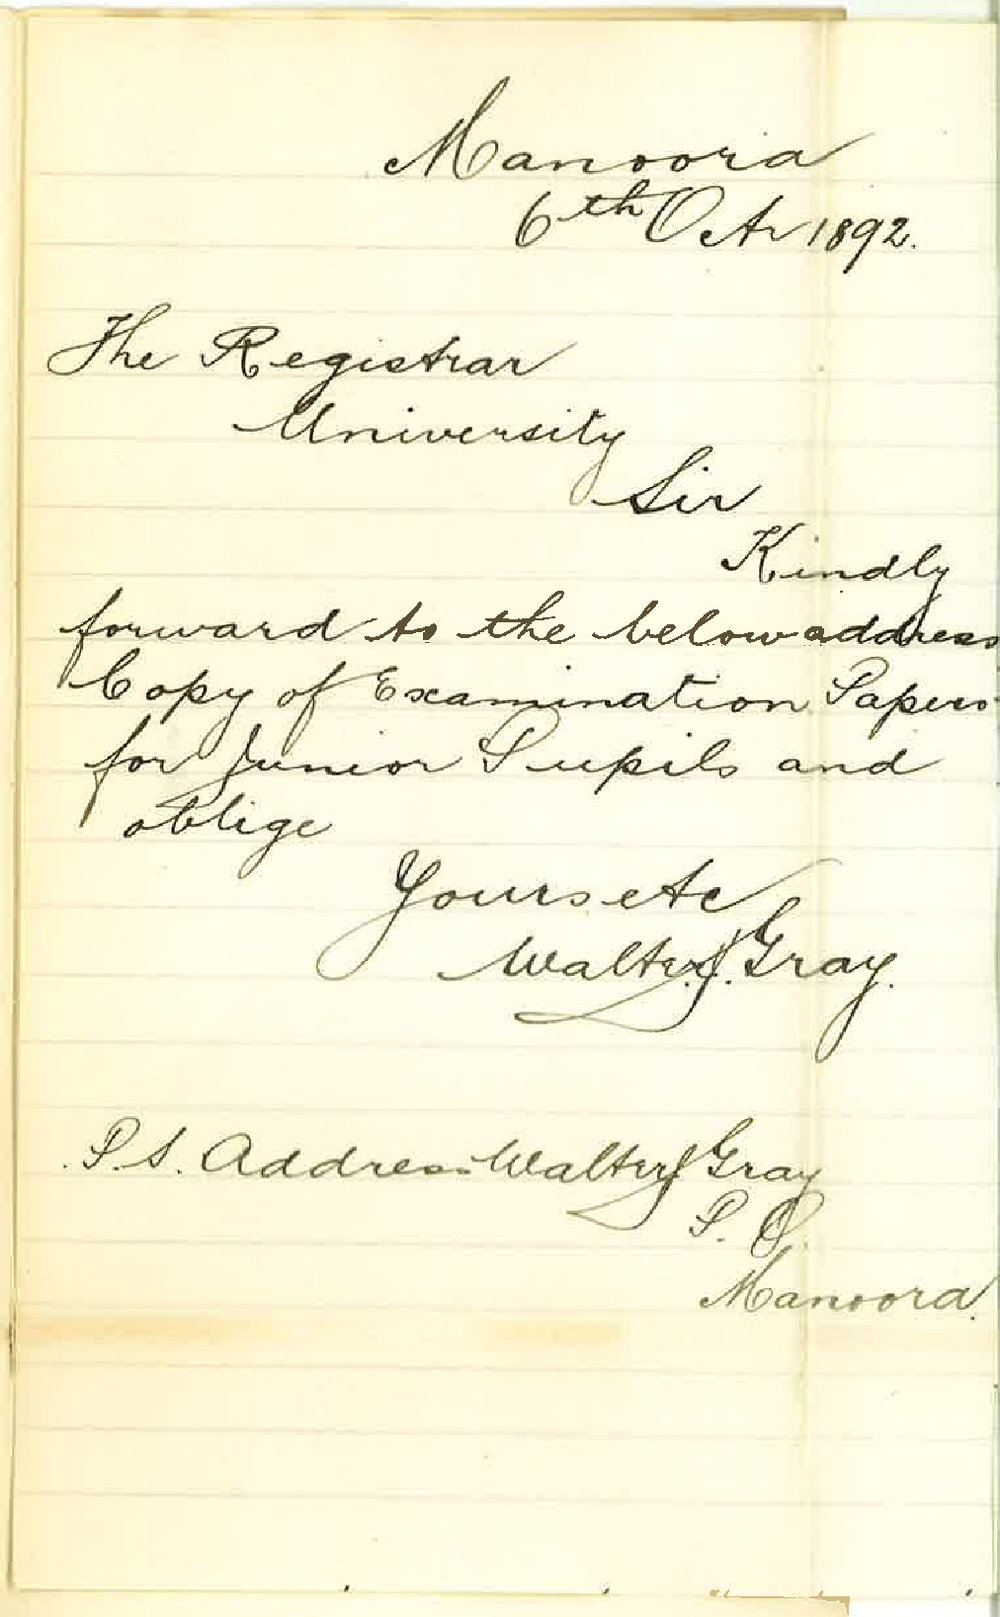 Manoora
6th Oct 1892.
The Registrar
University
Sir
Kindly
forward to the below address
Copy of Examination Papers
for Junior Pupils and
oblige
Yours etc
Walter J. Gray.
P.S. Address Walter J Gray
P. O.
Manoora.